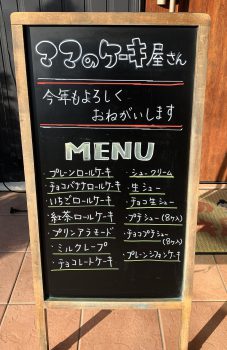 ママのケーキ屋さん
今年もよろしく
おねがいします
MENU
・プレーンロールケーキ
・チョコバナナロールケーキ
・いちごロールケーキ
・紅茶ロールケーキ
・プリンアラモード
・ミルクレープ
・チョコレートケーキ
・シュークリーム
・生シュー
・チョコ生シュー
・プチシュー(8ヶ入)
・チョコプチシュー
(8ヶ入)
・プレーンシフォンケーキ